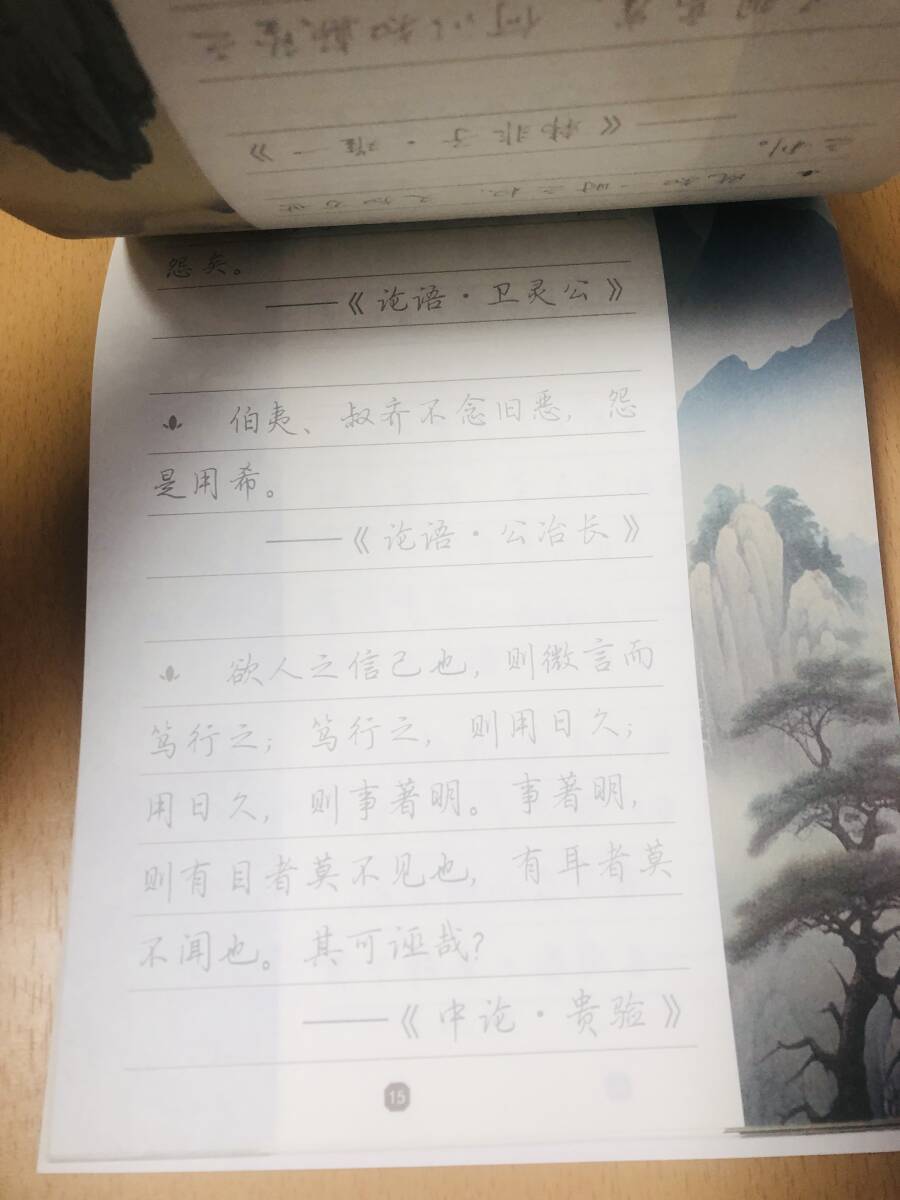 怨矣。
——《论语·卫灵公》
伯夷、叔齐不念旧恶，怨
是用希。
——《论语·公冶长》
欲人之信己也，则微言而
笃行之；笃行之，则用日久；
用日久，则事著明。事著明，
则有目者莫不见也，有耳者莫
不闻也。其可诬哉？
——《中论·贵验》
15
既知一时之权，又知万世
之利。
——《韩非子·难一》